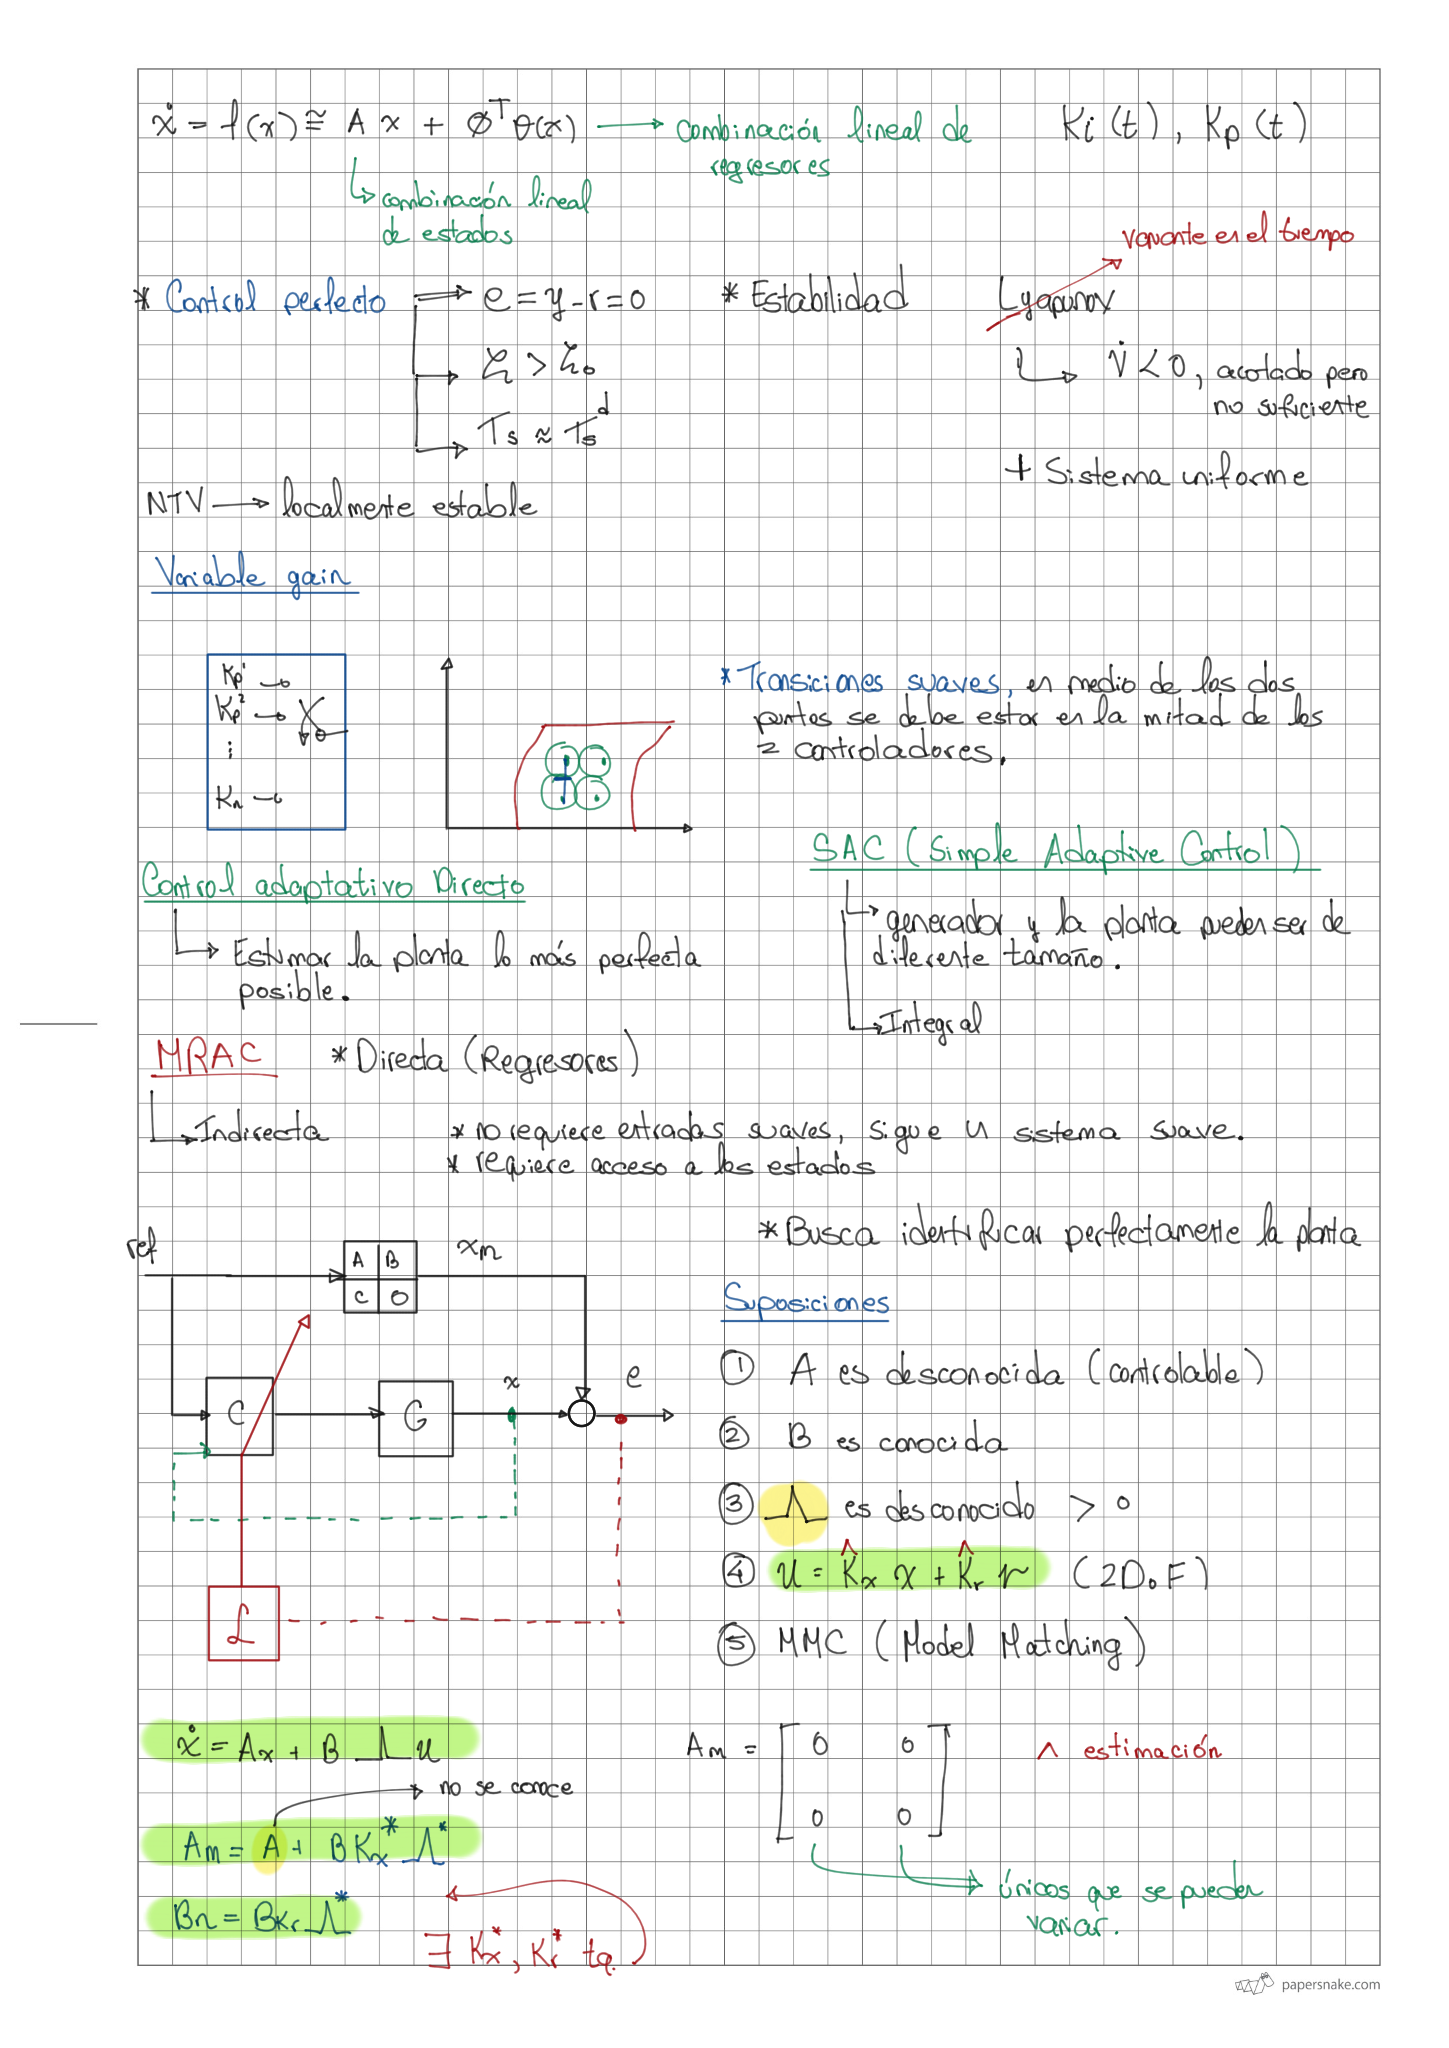 ẋ = f(x) ≅ A x + φᵀθ(x) → combinación lineal de regresores
Ki(t), Kp(t)
↳ combinación lineal
de estados
* Control perfecto
→ e = y - r = 0
→ ξ > ξ₀
→ Ts ≈ Tsᵈ
* Estabilidad
Lyapunov
variante en el tiempo
↳ V̇ < 0, acotado pero
no suficiente
+ Sistema uniforme
NTV → localmente estable
Variable gain
Kp¹
Kp²
⋮
Kn
* Transiciones suaves, en medio de los dos
puntos se debe estar en la mitad de los
2 controladores.
Control adaptativo Directo
↳ Estimar la planta lo más perfecta
posible.
SAC (Simple Adaptive Control)
↳ generador y la planta pueden ser de
diferente tamaño.
↳ Integral
MRAC
* Directa (Regresores)
↳ Indirecta
* no requiere entradas suaves, sigue u sistema suave.
* requiere acceso a los estados
* Busca identificar perfectamente la planta
ref
A B
C 0
xm
C
G
x
e
ℒ
Suposiciones
① A es desconocida (controlable)
② B es conocida
③ Λ es desconocido > 0
④ u = K̂x x + K̂r r (2DoF)
⑤ MMC (Model Matching)
ẋ = Ax + B Λ u
→ no se conoce
Am = A + B Kx* Λ*
Bn = BKr Λ*
∃ Kx*, Kr* tq.
Am = [ 0 0
0 0 ]
∧ estimación
→ únicos que se pueden
variar.
papersnake.com